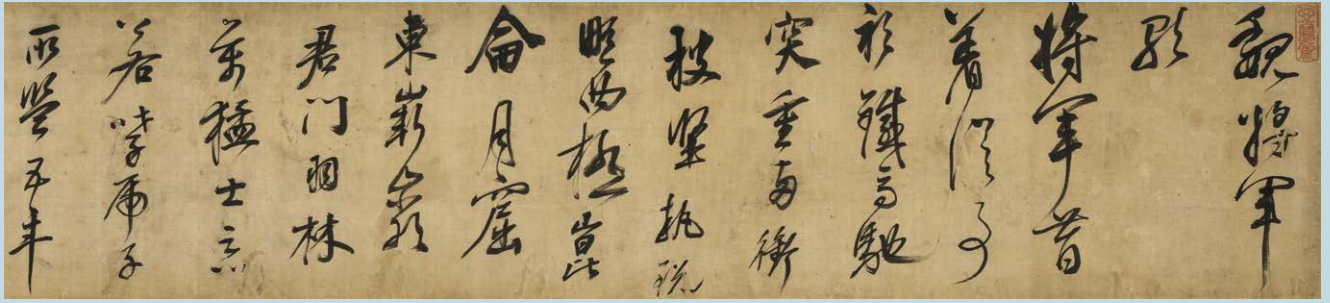 魏將軍
歌
將軍昔
著從事
衫鐵馬馳
突重兩銜
被堅執銳
略西極崑
侖月窟
東嶄巖
君門羽林
萬猛士惡
若哮虎子
所監五年